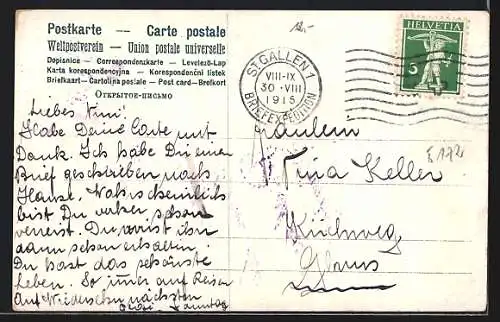 Postkarte — Carte postale
Weltpostverein — Union postale universelle
Dopisnice — Correspondenzkarte — Levelező-Lap
Karta korespondencyjna — Korespondenční lístek
Briefkaart — Cartolina postale — Post card — Brefkort
ОТКРЫТОЕ-ПИСЬМО
HELVETIA
5
ST. GALLEN 1
VIII-IX
30·VIII
1915
BRIEFEXPEDITION
Liebes Nini!
Habe Deine Carte mit
Dank. Ich habe Dir einen
Brief geschrieben nach
Hause. Wahrscheinlich
bist Du vorher schon
verreist. Du wirst ihn
dann schon erhalten.
Du hast das schönste
Leben. So immer auf Reisen
Auf Wiedersehn nächsten
Sonntag
Fräulein
Nina Keller
Kirchweg
Glarus